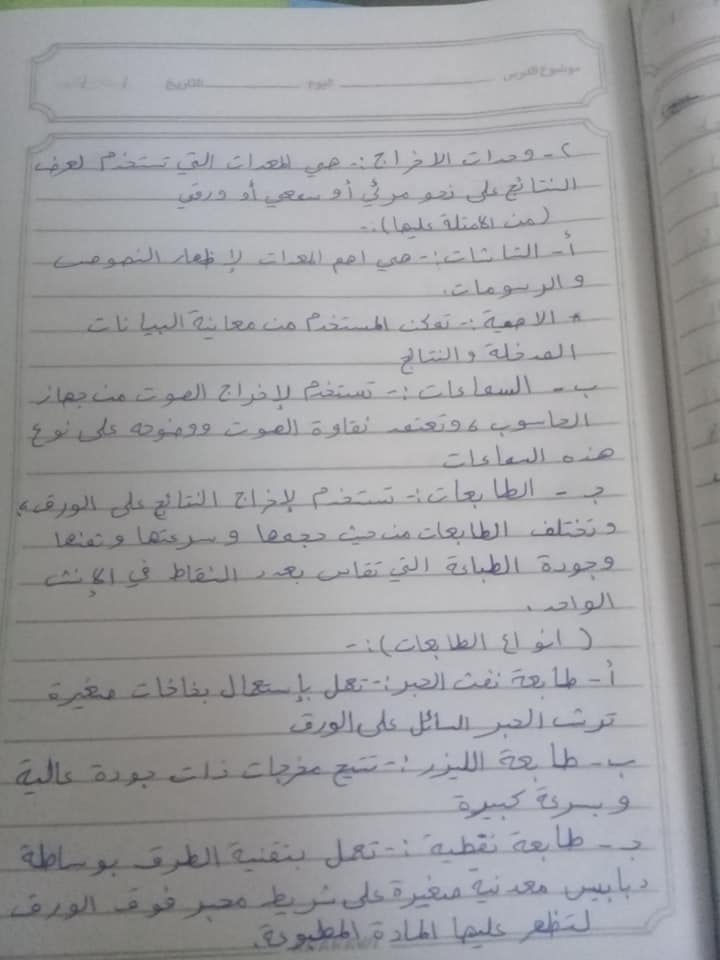 موضوع الدرس اليوم التاريخ / /
٢- وحدات الاخراج :- هي المعدات التي تستخدم لعرض
النتائج على نحو مرئي أو سمعي أو ورقي
(من الامثلة عليها) :-
أ- الشاشات :- هي اهم المعدات لإظهار النصوص
و الرسومات.
* الاهمية :- تمكن المستخدم من معاينة البيانات
المدخلة والنتائج
ب- السماعات :- تستخدم لإخراج الصوت من جهاز
الحاسوب ، وتعتمد نقاوة الصوت ووضوحه على نوع
هذه السماعات
جـ - الطابعات :- تستخدم لإخراج النتائج على الورق ،
وتختلف الطابعات من حيث حجمها و سرعتها و ثمنها
وجودة الطباعة التي تقاس بعدد النقاط في الإنش
الواحد.
( انواع الطابعات ) :-
أ- طابعة نفث الحبر :- تعمل بإستعمال بخاخات صغيرة
ترش الحبر السائل على الورق
ب- طابعة الليزر :- تنتج مخرجات ذات جودة عالية
و بسرعة كبيرة
جـ - طابعة نقطية :- تعمل بتقنية الطرق بوساطة
دبابيس معدنية صغيرة على شريط محبر فوق الورق
لتظهر عليها المادة المطبوعة.